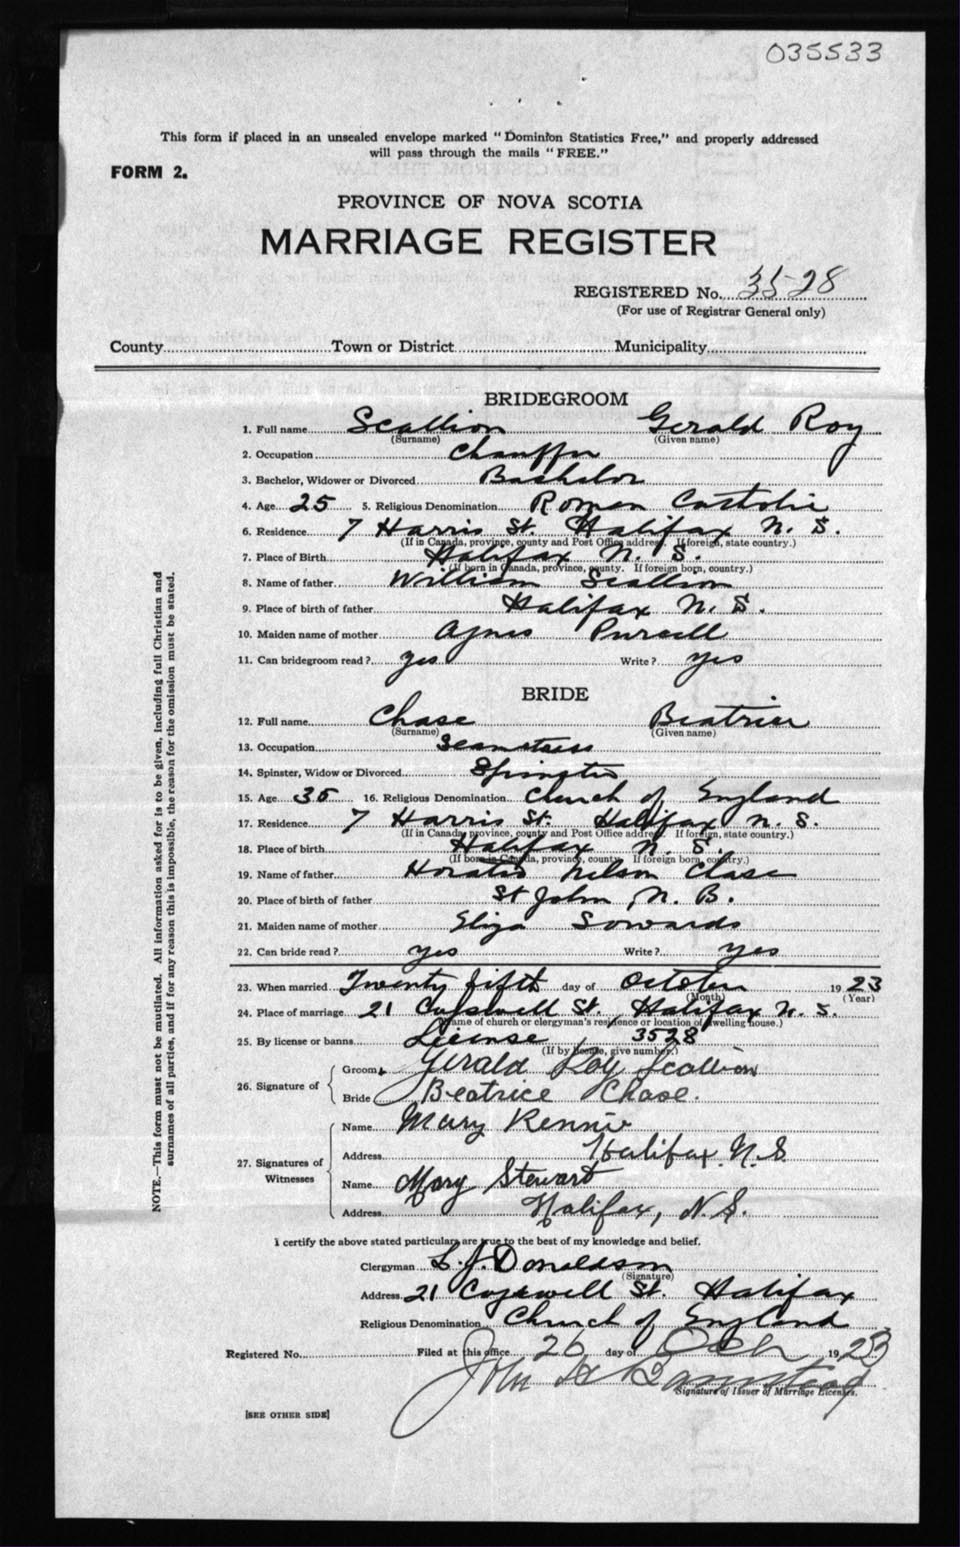 035533
This form if placed in an unsealed envelope marked "Dominion Statistics Free," and properly addressed
will pass through the mails "FREE."
FORM 2.
PROVINCE OF NOVA SCOTIA
MARRIAGE REGISTER
REGISTERED No. 3528
(For use of Registrar General only)
County Town or District Municipality
BRIDEGROOM
1. Full name Scallion Gerald Roy
(Surname) (Given name)
2. Occupation Chauffer
3. Bachelor, Widower or Divorced Bachelor
4. Age 25 5. Religious Denomination Roman Catholic
6. Residence 7 Harris St. Halifax N. S.
(If in Canada, province, county and Post Office address. If foreign, state country.)
7. Place of Birth Halifax N. S.
(If born in Canada, province, county. If foreign born, country.)
8. Name of father William Scallion
9. Place of birth of father Halifax N. S.
10. Maiden name of mother Agnes Purcell
11. Can bridegroom read? yes Write? yes
BRIDE
12. Full name Chase Beatrice
(Surname) (Given name)
13. Occupation Seamstress
14. Spinster, Widow or Divorced Spinster
15. Age 36 16. Religious Denomination Church of England
17. Residence 7 Harris St. Halifax N. S.
(If in Canada, province, county and Post Office address. If foreign, state country.)
18. Place of birth Halifax N. S.
(If born in Canada, province, county. If foreign born, country.)
19. Name of father Horatio Nelson Chase
20. Place of birth of father St John, N. B.
21. Maiden name of mother Eliza Sowards
22. Can bride read? yes Write? yes
23. When married Twenty fifth day of October 1923
(Month) (Year)
24. Place of marriage 21 Cogswell St. Halifax N. S.
(Name of church or clergyman's residence or location of dwelling house.)
25. By license or banns License 3528
(If by license, give number.)
26. Signature of
Groom Gerald Roy Scallion
Bride Beatrice Chase.
27. Signatures of Witnesses
Name Mary Rennie
Address Halifax, N. S
Name Mary Stewart
Address Halifax, N. S.
I certify the above stated particulars are true to the best of my knowledge and belief.
Clergyman L. J. Donaldson
(Signature)
Address 21 Cogswell St. Halifax
Religious Denomination Church of England
Registered No. Filed at this office 26 day of Oct 1923
John H Barnstead
Signature of Issuer of Marriage Licenses.
[SEE OTHER SIDE]
NOTE.—This form must not be mutilated. All information asked for is to be given, including full Christian and
surnames of all parties, and if for any reason this is impossible, the reason for the omission must be stated.